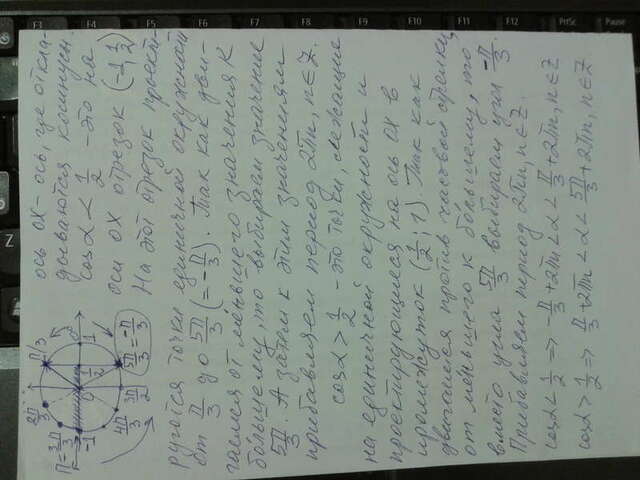 ось ОХ - ось, где откла-
дываются косинусы.
cosα < 1/2 - это на
оси ОХ отрезок (-1, 1/2)
На этот отрезок проект-
руются точки единичной окружности
от π/3 до 5π/3 (= -π/3). Так как дви-
гаемся от меньшего значения к
большему, то выбираем значение
5π/3. А затем к этим значениям
прибавляем период 2πn, n∈Z.
cosα > 1/2 - это точки, лежащие
на единичной окружности и
проектирующиеся на ось ОХ в
промежуток (1/2; 1). Так как
двигаемся против часовой стрелки,
от меньшего к большему, то
вместо угла 5π/3 выбираем угол -π/3.
Прибавляем период 2πn, n∈Z.
cosα < 1/2 => -π/3 + 2πn < α < π/3 + 2πn, n∈Z
cosα > 1/2 => π/3 + 2πn < α < 5π/3 + 2πn, n∈Z
2π/3
π/3
-1
0
1/2
1
4π/3
3π/2
5π/3 = -π/3
F5
F6
F7
F8
F9
F10
F11
F12
PrtSc
Pause
Z